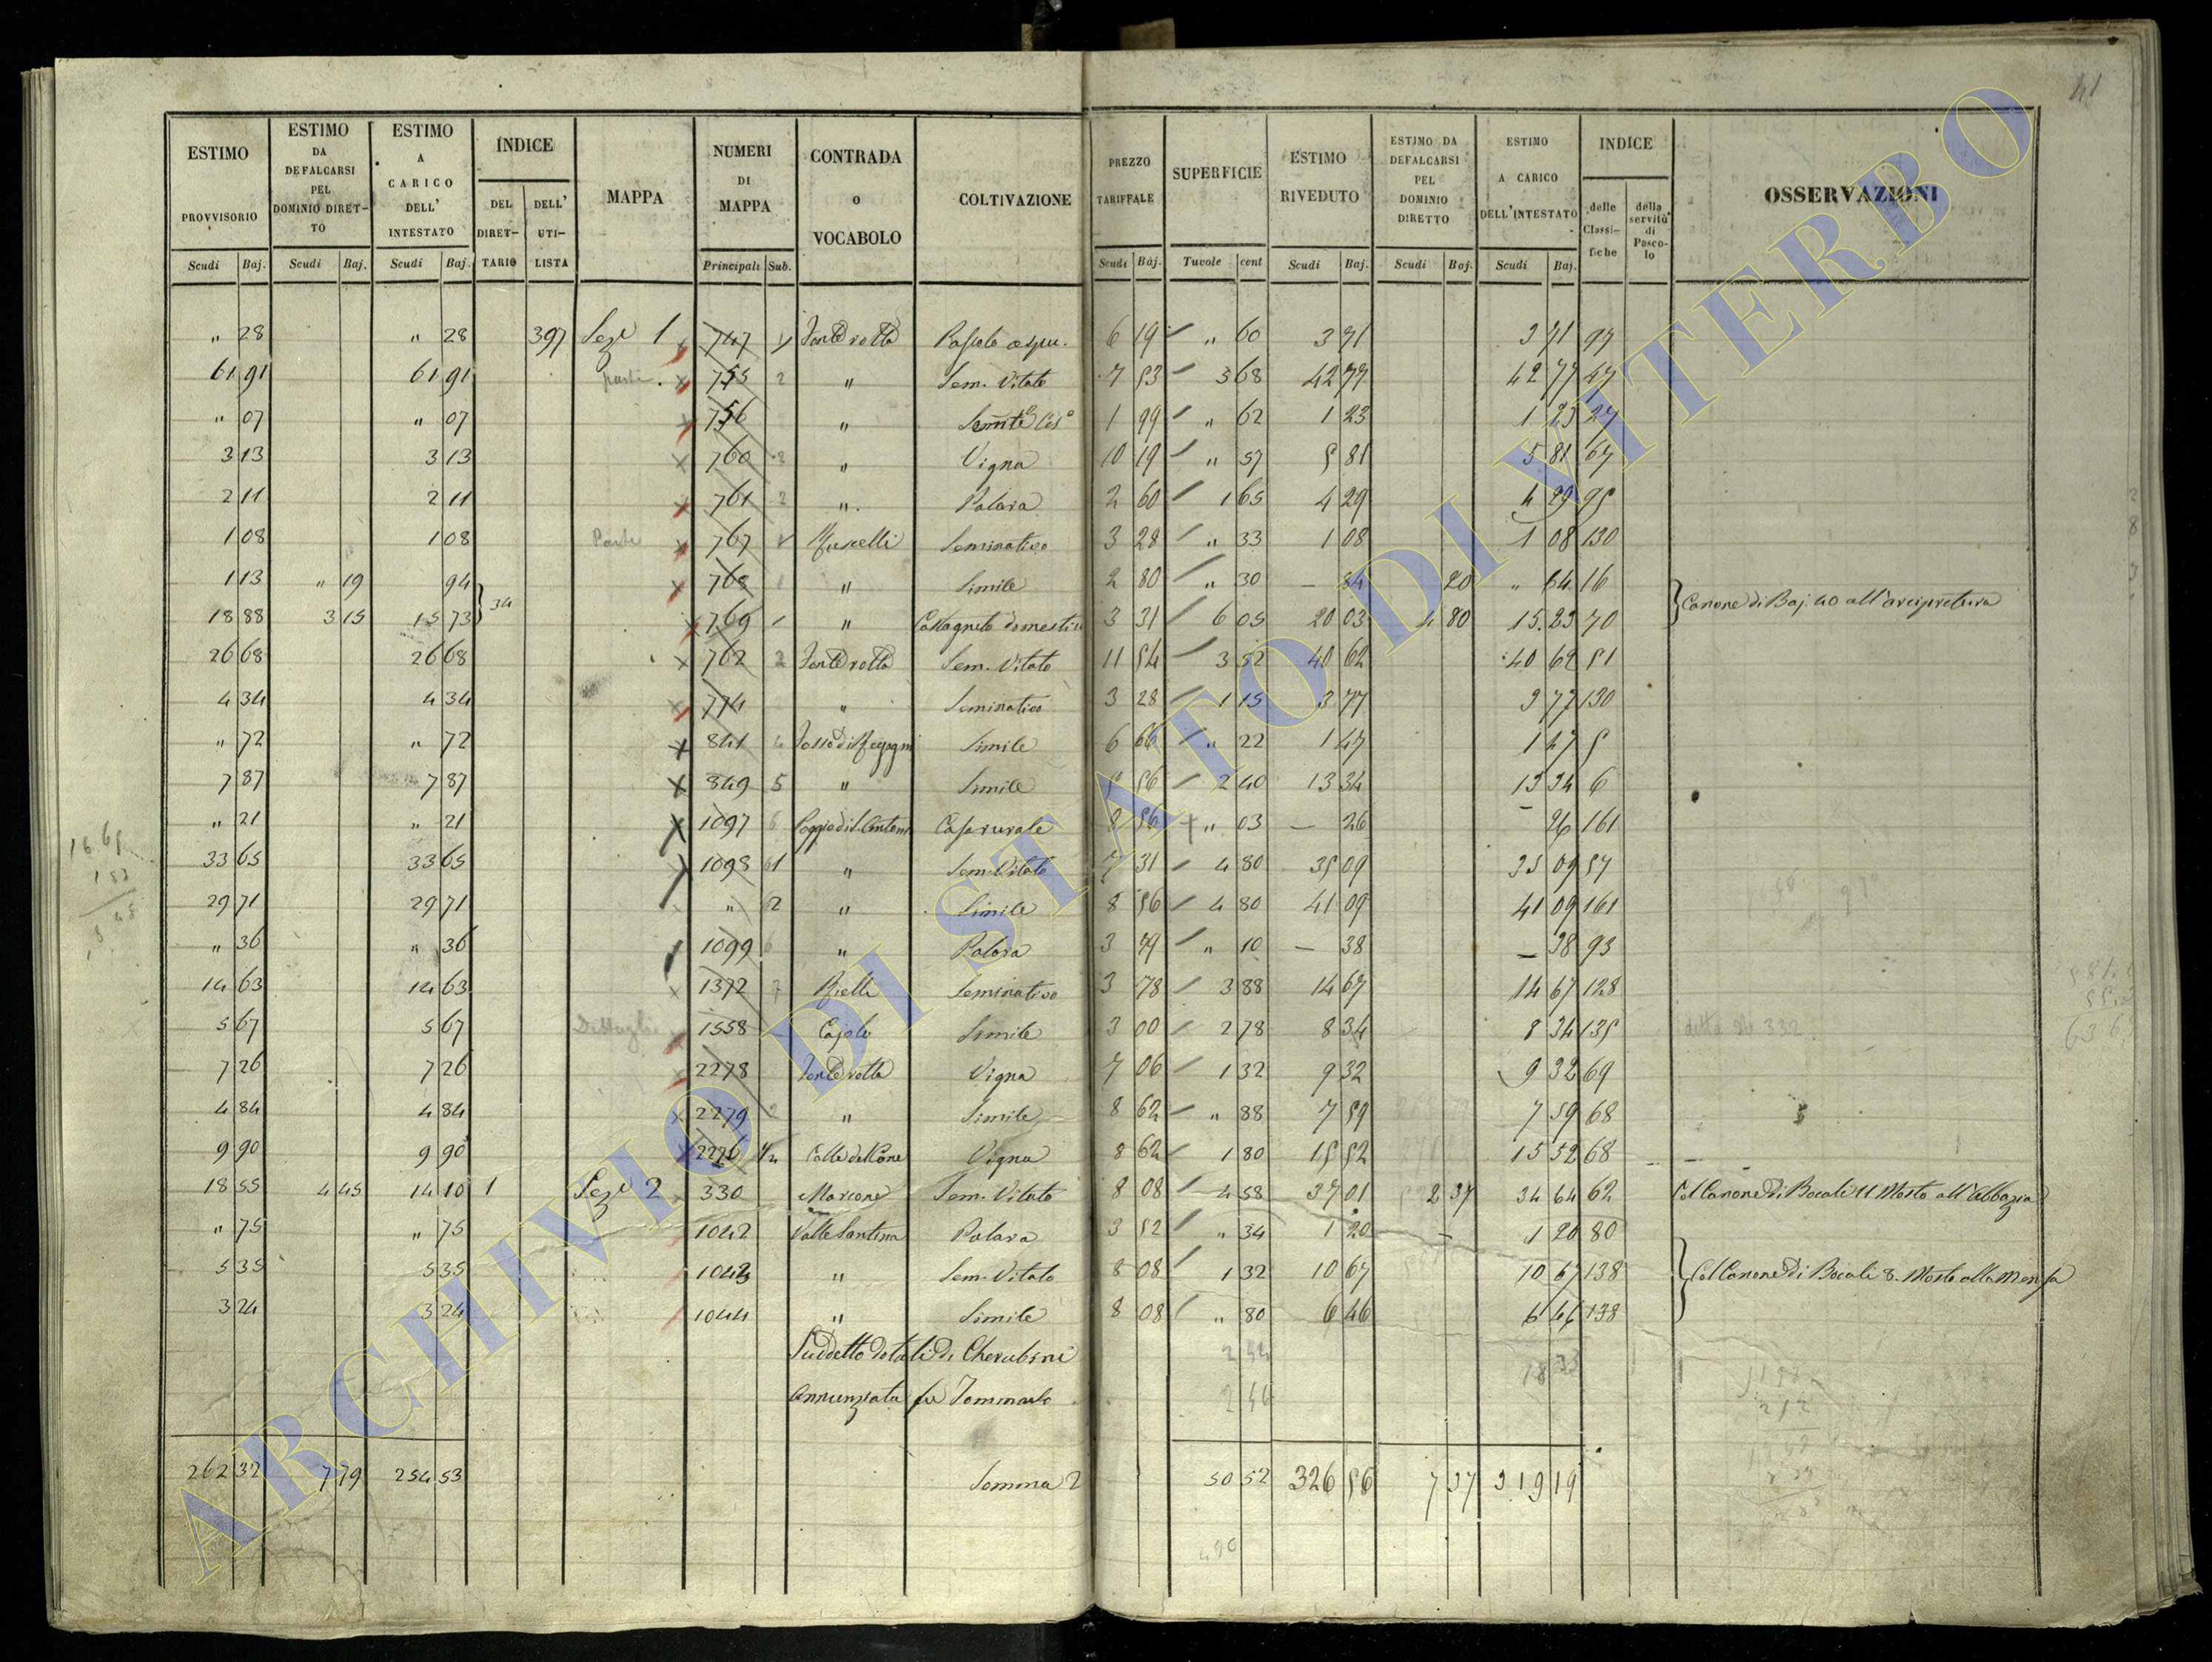 41
ESTIMO PROVVISORIO Scudi Baj. | ESTIMO DA DEFALCARSI PEL DOMINIO DIRETTO Scudi Baj. | ESTIMO A CARICO DELL' INTESTATO Scudi Baj. | INDICE DEL DIRETTARIO | DELL' UTILISTA | MAPPA | NUMERI DI MAPPA Principali Sub. | CONTRADA o VOCABOLO | COLTIVAZIONE | PREZZO TARIFFALE Scudi Baj. | SUPERFICIE Tavole cent | ESTIMO RIVEDUTO Scudi Baj. | ESTIMO DA DEFALCARSI PEL DOMINIO DIRETTO Scudi Baj. | ESTIMO A CARICO DELL'INTESTATO Scudi Baj. | INDICE delle Classifiche | della servitù di Pascolo | OSSERVAZIONI
" 28 " 28 397 Sez.e 1 747 Fonte rotta Pascolo 6 19 " 60 3 71 3 71 99
61 91 61 91 parte. 755 2 " Sem. Vitato 7 53 5 68 42 77 42 77 47
" 07 " 07 756 " 1 99 " 62 1 23 1 23 27
3 13 3 13 760 2 " Vigna 10 19 " 57 5 81 5 81 67
2 11 2 11 761 2 " Palara 2 60 1 65 4 29 4 29 95
1 08 1 08 Parte 767 Seminativo 3 28 " 33 1 08 1 08 130
1 13 " 19 94 768 1 " Simile 2 80 " 30 — 84 20 " 64 16
18 88 3 15 15 73 34 769 1 " Castagneto domestico 3 31 6 05 20 03 4 80 15.23 70 Canone di Baj. 40 all'arcipretura
26 68 26 68 762 2 Fonte rotta Sem. Vitato 11 54 3 52 40 62 40 62 51
4 34 4 34 774 " Seminativo 3 28 1 15 3 77 3 77 130
" 72 " 72 841 4 Simile 6 66 " 22 1 47 1 47 5
7 87 7 87 849 5 " Simile 5 56 2 40 13 34 13 34 6
" 21 " 21 1097 6 Casa rurale 8 56 " 03 — 26 — 26 161
33 65 33 65 1098 61 " Sem. Vitato 7 31 4 80 35 09 35 09 57
29 71 29 71 " 2 " Simile 8 56 4 80 41 09 41 09 161
" 36 " 36 1099 6 " Palara 3 79 " 10 — 38 — 38 93
14 63 14 63 1372 7 Seminativo 3 78 3 88 14 67 14 67 128
5 67 5 67 Dettaglio 1558 Cajolo Simile 3 00 2 78 8 34 8 34 135
7 26 7 26 2278 Fonte rotta Vigna 7 06 1 32 9 32 9 32 69
4 84 4 84 2279 2 " Simile 8 62 " 88 7 59 7 59 68
9 90 9 90 2276 1/2 Colle del Cone Vigna 8 62 1 80 15 52 15 52 68
18 55 4 45 14 10 1 Sez.e 2 330 Marcone Sem. Vitato 8 08 4 58 37 01 2 37 34 64 62 Col Canone di Bocali 11 Mosto all'Abbazia
" 75 " 75 1042 Valle Santina Palara 3 52 " 34 1 20 1 20 80
5 35 5 35 1043 " Sem. Vitato 8 08 1 32 10 67 10 67 138 Col Canone di Bocali 8. Mosto alla Mensa
3 24 3 24 1044 " Simile 8 08 " 80 6 46 6 46 138
Suddetto dotali di Cherubini
Annunziata fu Tommaso
262 32 7 79 254 53 Somma 2 50 52 326 56 7 37 319 19
ARCHIVIO DI STATO DI VITERBO